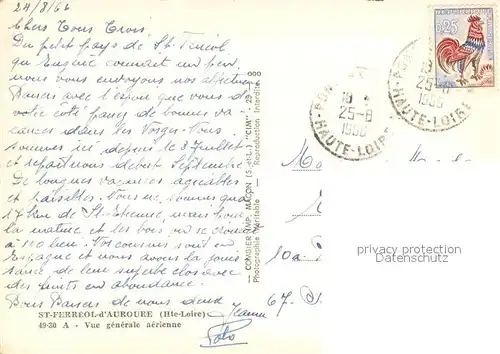 24/8/66
Chers Tous Trois.
Du petit pays de St Ferréol
qui Eugène connait un peu,
nous vous envoyons nos affectueux
Baisers avec l'espoir que vous de
votre côté passez de bonnes va-
cances dans les Vosges. Nous
sommes ici depuis le 3 Juillet
et repartirons début Septembre
De longues vacances agréables
et paisibles. Nous ne sommes qu'à
17 km de St-Etienne, mais vous
la nature et les bois on se croirait
à 100 lieu. Nos cousins sont en
Espagne et nous avons la jouis-
sance de leur superbe clos avec
des fruits en abondance.
Bons Baisers de nous deux
Jeanne
Polo
ST-FERRÉOL-d'AUROURE (Hte-Loire)
49-30 A - Vue générale aérienne
COMBIER IMP. MACON (S.-et-L.) "CIM"
Photographie Véritable - Reproduction Interdite
0,25
18
25-8
1966
HAUTE-LOIRE
18
25-8
1966
HAUTE-LOIRE
10a
67.
privacy protection
Datenschutz